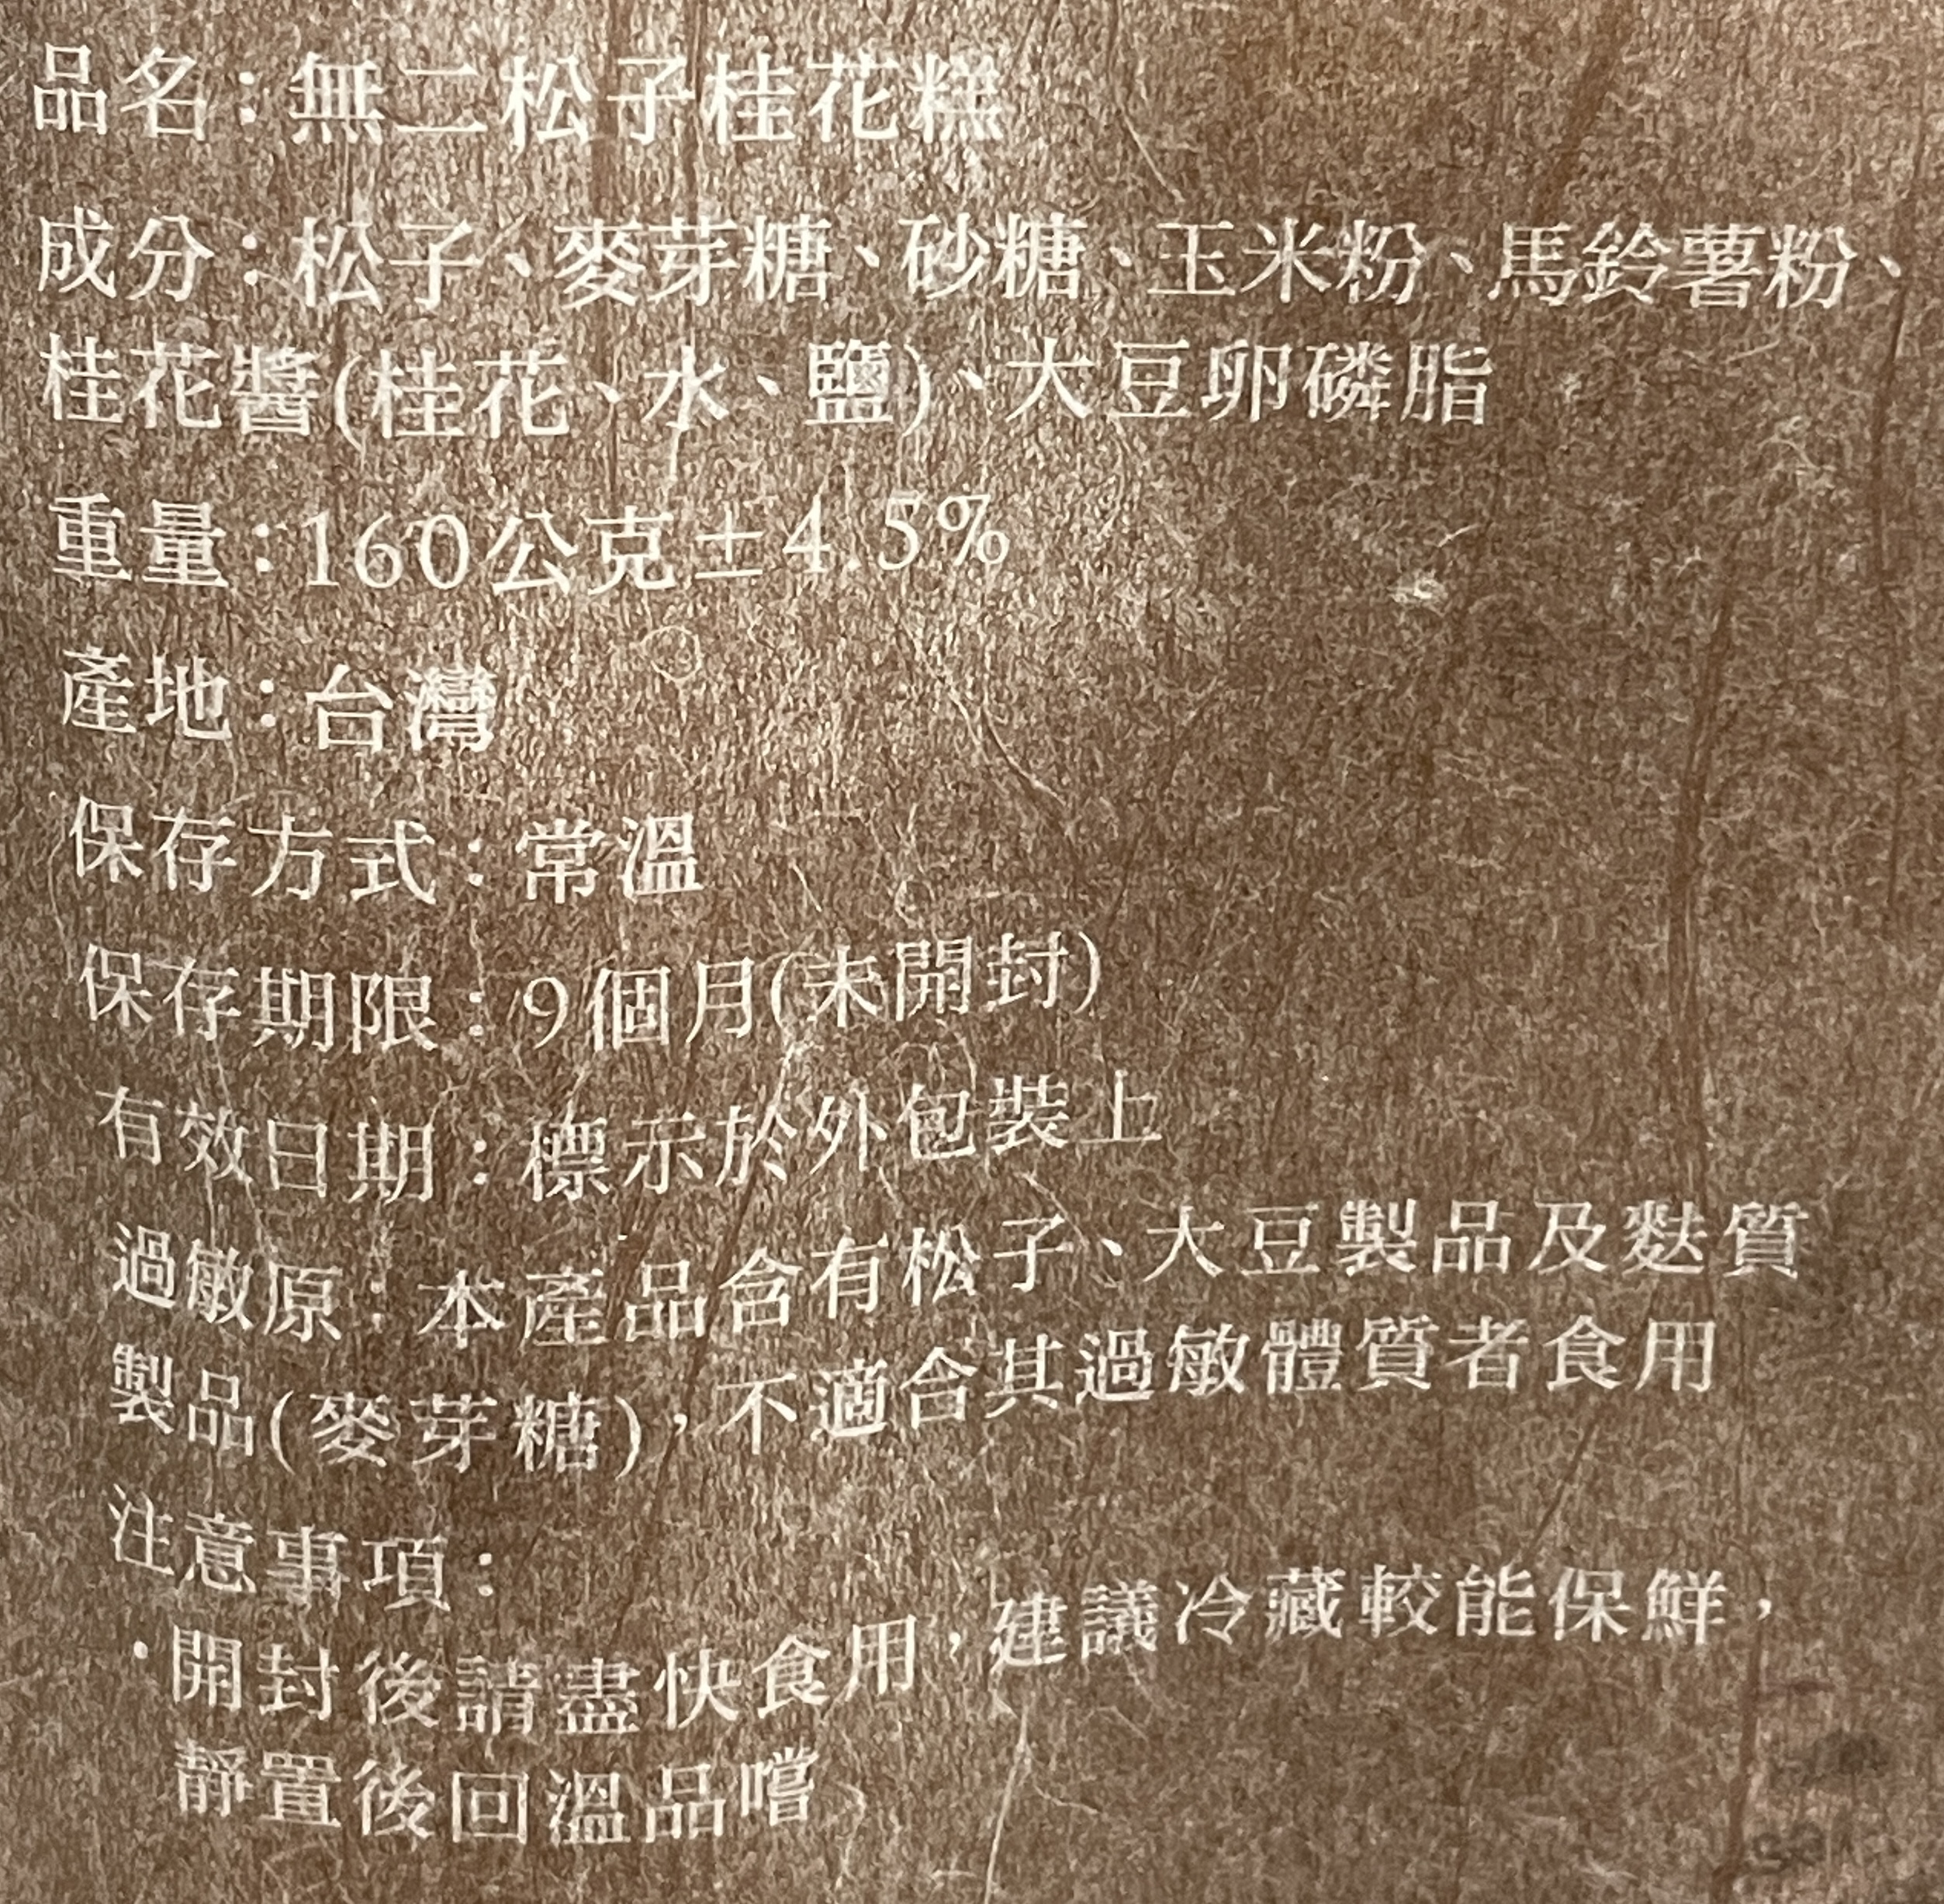 品名：無二松子桂花糕
成分：松子、麥芽糖、砂糖、玉米粉、馬鈴薯粉、
桂花醬(桂花、水、鹽)、大豆卵磷脂
重量：160公克±4.5%
產地：台灣
保存方式：常溫
保存期限：9個月(未開封)
有效日期：標示於外包裝上
過敏原：本產品含有松子、大豆製品及麩質
製品(麥芽糖)，不適合其過敏體質者食用
注意事項：
·開封後請盡快食用，建議冷藏較能保鮮，
靜置後回溫品嚐